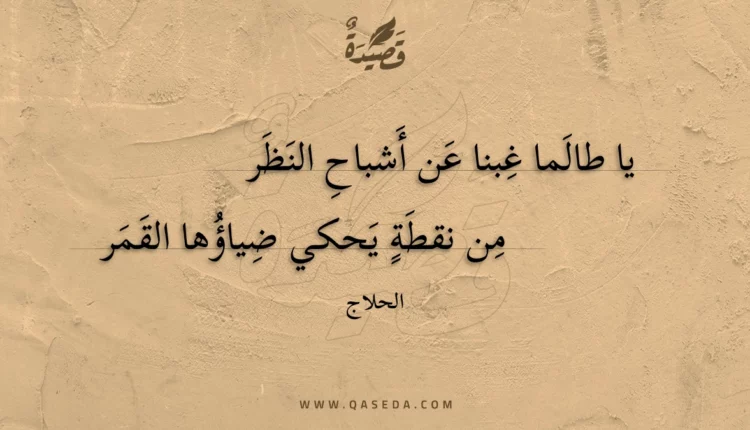 قَصِيدَةٌ
يا طالَما غِبنا عَن أَشباحِ النَظَر
مِن نقطَةٍ يَحكي ضِياؤُها القَمَر
الحلاج
WWW.QASEDA.COM